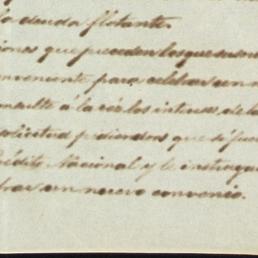 la deuda flotante.
iones que preceden los que suscri
conveniente para celebrar un n
consulte á la los intereses de la
solicitud pidiendos que se fue
rédito Nacional y le instruya
brar un nuevo convenio.